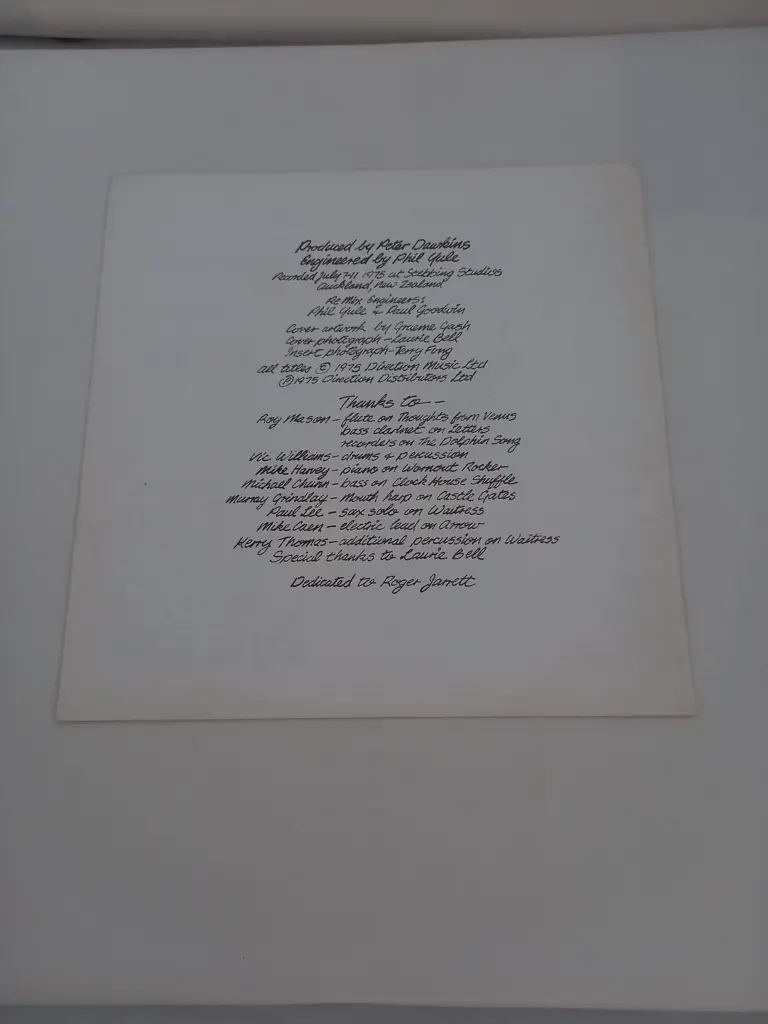 Produced by Peter Dawkins
Engineered by Phil Yule
Recorded July 7-11 1975 at Stebbing Studios
Auckland, New Zealand
Re Mix Engineers:
Phil Yule & Paul Goodwin
Cover artwork by Graeme Gash
Cover photograph - Laurie Bell
Insert photograph - Terry Fong
All titles © 1975 Direction Music Ltd
℗ 1975 Direction Distributors Ltd
Thanks to --
Roy Mason - flute on Thoughts from Venus
bass clarinet on Letters
recorders on The Dolphin Song
Vic Williams - drums & percussion
Mike Harvey - piano on Wornout Rocker
Michael Chunn - bass on Clock House Shuffle
Murray Grindlay - Mouth harp on Castle Gates
Paul Lee - sax solo on Waitress
Mike Caen - electric lead on Arrow
Kerry Thomas - additional percussion on Waitress
Special thanks to Laurie Bell
Dedicated to Roger Jarrett